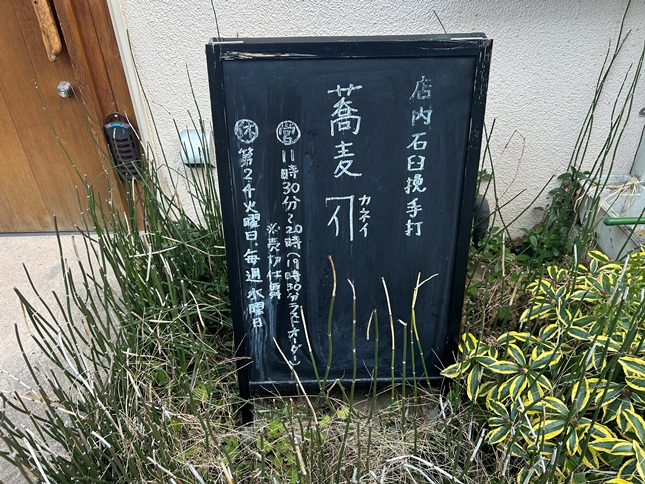 店内石臼挽手打
蕎麦
カネイ
営 11時30分~20時(19時30分ラストオーダー)
※売切仕舞
休 第2.4火曜日.毎週水曜日